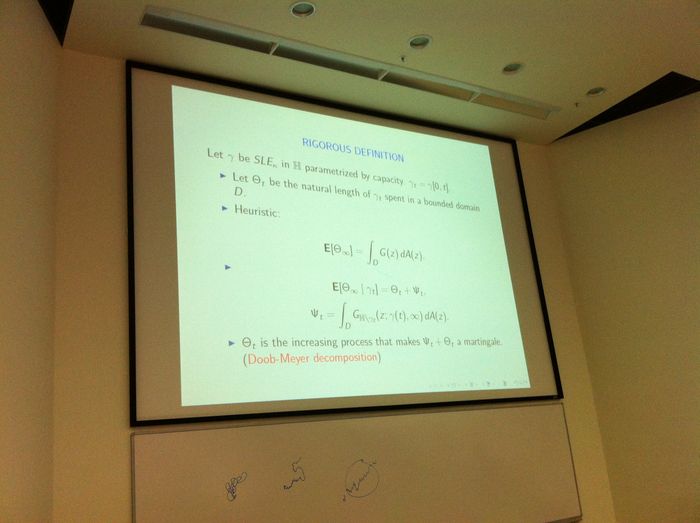 RIGOROUS DEFINITION
Let γ be SLE_κ in ℍ parametrized by capacity γ_t = γ[0, t].
▶ Let Θ_t be the natural length of γ_t spent in a bounded domain
D.
▶ Heuristic:
E[Θ_∞] = ∫_D G(z) dA(z).
▶
E[Θ_∞ | γ_t] = Θ_t + Ψ_t,
Ψ_t = ∫_D G_{ℍ\γ_t}(z; γ(t), ∞) dA(z).
▶ Θ_t is the increasing process that makes Ψ_t + Θ_t a martingale.
(Doob-Meyer decomposition)